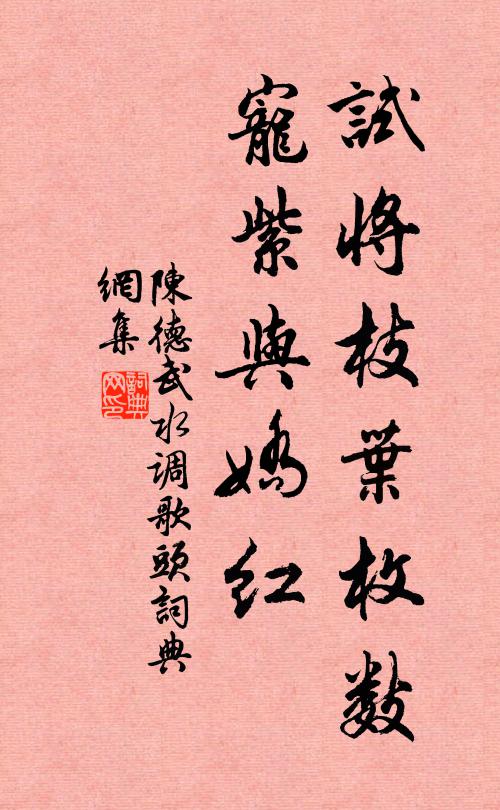 試將枝葉枚數
寵紫與嬌紅
陳德武水调歌頭詞典
網集
詞典
网印